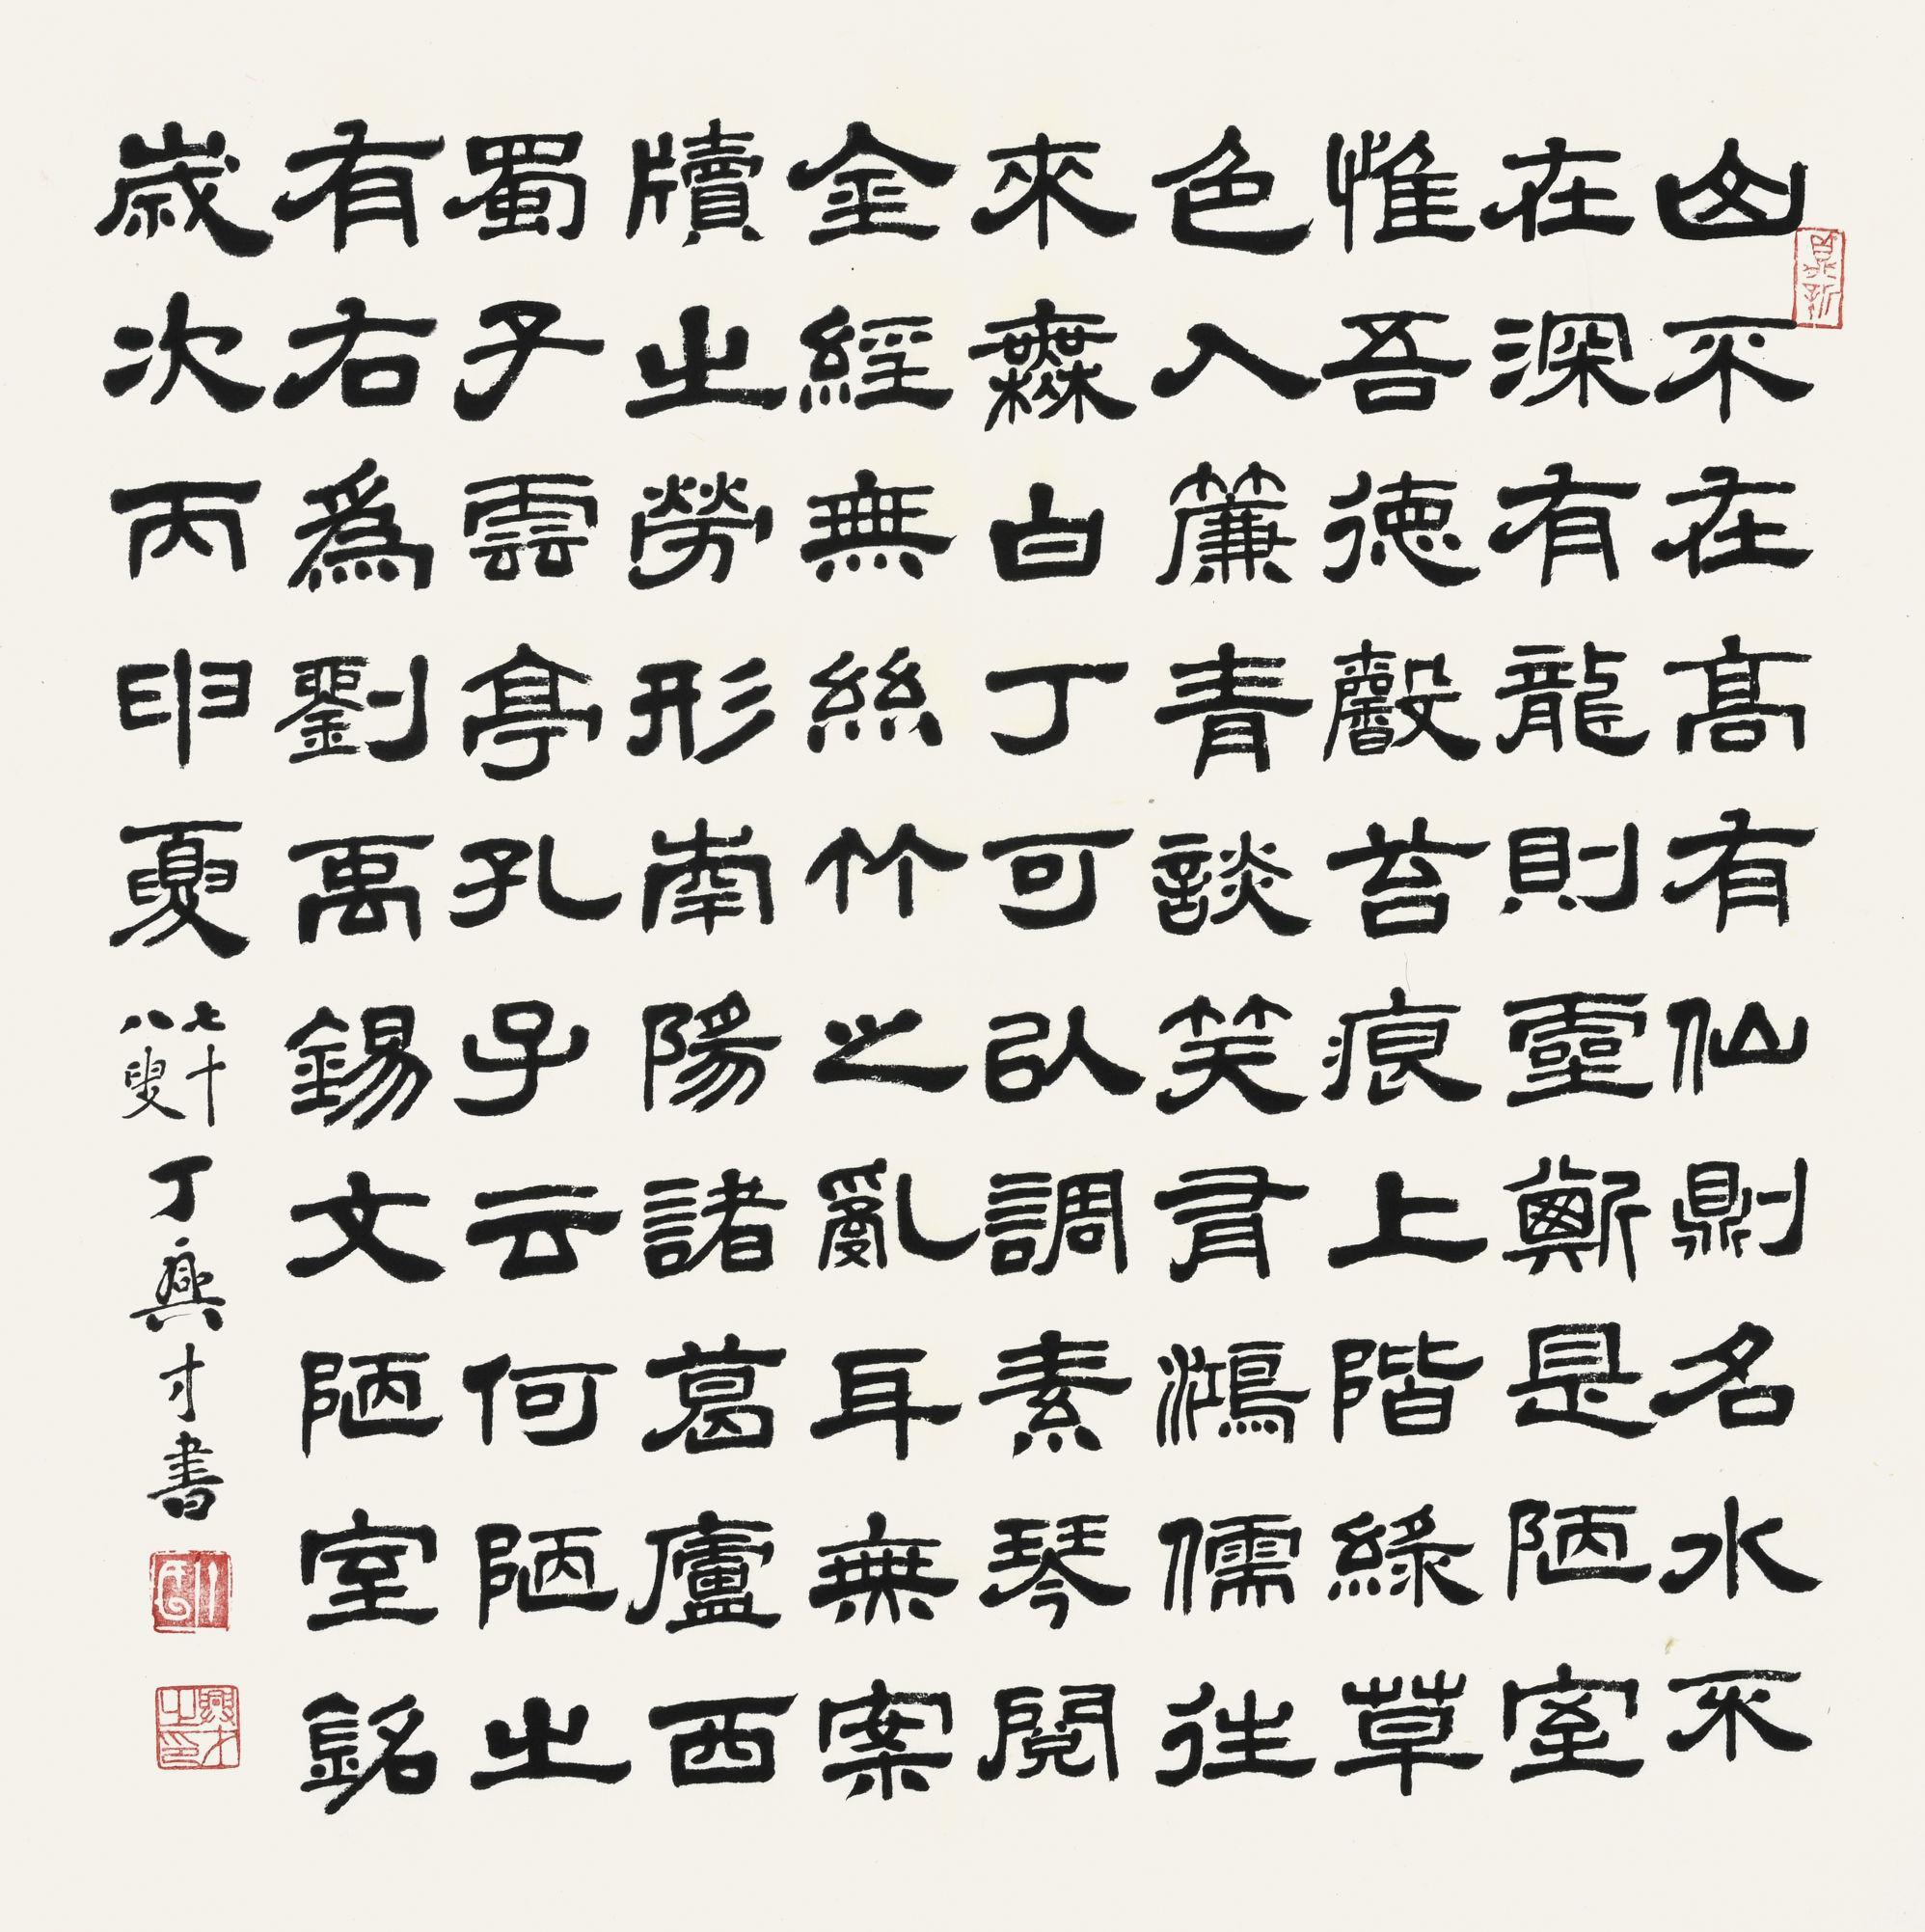 山不在高有仙則名水不
在深有龍則靈斯是陋室
惟吾德馨苔痕上階緑草
色入簾青談笑有鴻儒往
來無白丁可以調素琴閱
金經無絲竹之亂耳無案
牘之勞形南陽諸葛廬西
蜀子雲亭孔子云何陋之
有右爲劉禹錫文陋室銘
歲次丙申夏七十八叟丁興才書
興才之印